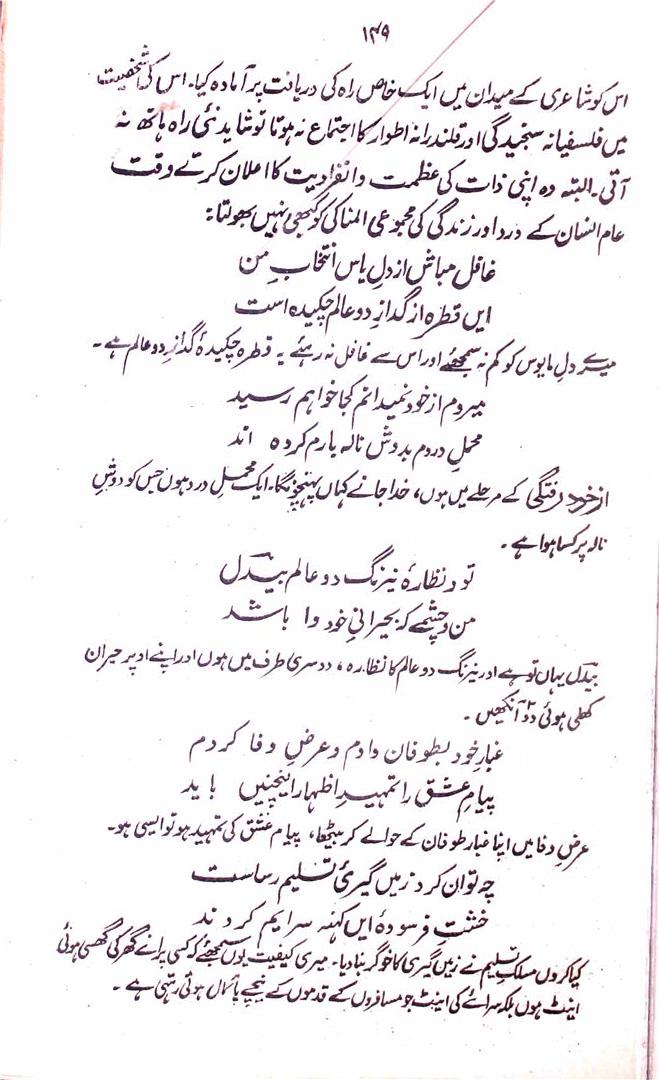 ۱۴۹
اس کو شاعری کے میدان میں ایک خاص راہ کی دریافت پر آمادہ کیا۔ اس کی شخصیت
میں فلسفیانہ سنجیدگی اور قلندرانہ اطوار کا اجتماع نہ ہوتا تو شاید نئی راہ ہاتھ نہ
آتی۔ البتہ وہ اپنی ذات کی عظمت و انفرادیت کا اعلان کرتے وقت
عام انسان کے درد اور زندگی کی مجموعی المناکی کو کبھی نہیں بھولتا:
غافل مباش از دلِ یاس انتخابِ من
ایں قطرہ از گدازِ دو عالم چکیدہ است
میرے دلِ مایوس کو کم نہ سمجھئے اور اس سے غافل نہ رہئے یہ قطرہ چکیدۂ گدازِ دو عالم ہے۔
میروم از خود نمیدانم کجا خواہم رسید
محملِ دردم بدوش نالہ بارم کردہ اند
از خود رفتگی کے مرحلے میں ہوں، خدا جانے کہاں پہنچونگا۔ ایک محملِ درد ہوں جس کو دوشِ
نالہ پر کسا ہوا ہے۔
تو و نظارۂ نیرنگ دو عالم بیدلؔ
من و چشمے کہ بحیرانیِ خود وا باشد
بیدلؔ یہاں تو ہے اور نیرنگ دو عالم کا نظارہ، دوسری طرف میں ہوں اور اپنے اوپر حیران
کھلی ہوئی دو آنکھیں۔
غبارِ خود بطوفان دادم و عرضِ وفا کردم
پیامِ عشق را تمہیدِ اظہار اینچنیں باید
عرضِ وفا میں اپنا غبار طوفان کے حوالے کر بیٹھا، پیام عشق کی تمہید ہو تو ایسی ہو۔
چہ تواں کرد زمیں گیریٔ تسلیم رساست
خشتِ فرسودۂ ایں کہنہ سرایم کردند
کیا کروں مسلکِ تسلیم نے زمیں گیری کا خوگر بنا دیا۔ میری کیفیت یوں سمجھئے کہ کسی پرانے گھر کی گھسی ہوئی
اینٹ ہوں بلکہ سرائے کی اینٹ جو مسافروں کے قدموں کے نیچے پائمال ہوتی رہتی ہے۔